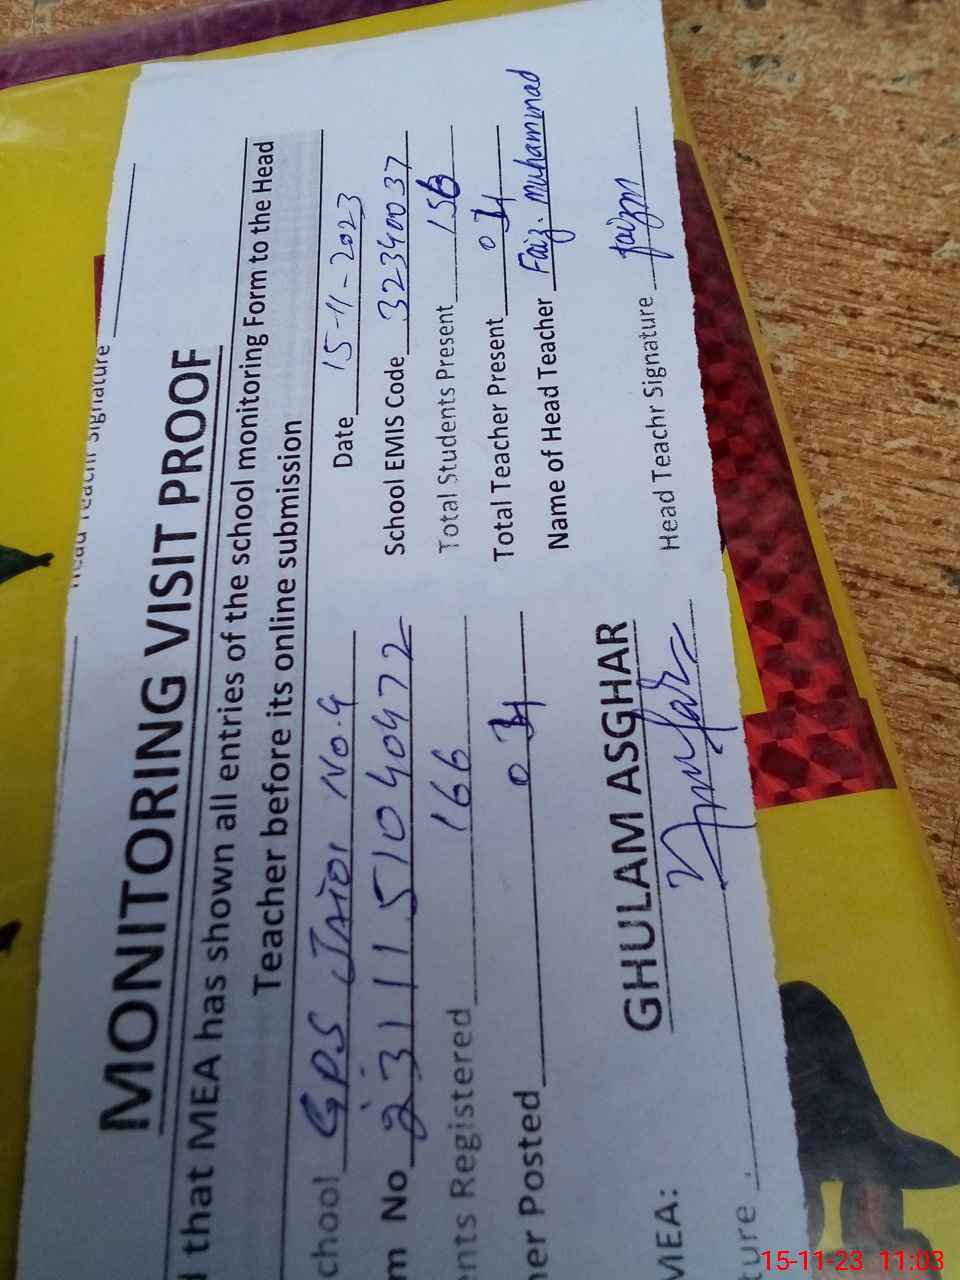 Head Teachr Signature
MONITORING VISIT PROOF
that MEA has shown all entries of the school monitoring Form to the Head
Teacher before its online submission
chool GPS JATOI NO.4 Date 15-11-2023
m No 2311151040472 School EMIS Code 32340037
ents Registered 166 Total Students Present 156
her Posted Total Teacher Present
Name of Head Teacher Faiz. Muhammad
MEA: GHULAM ASGHAR
ture Head Teachr Signature faizm
15-11-23 11:03